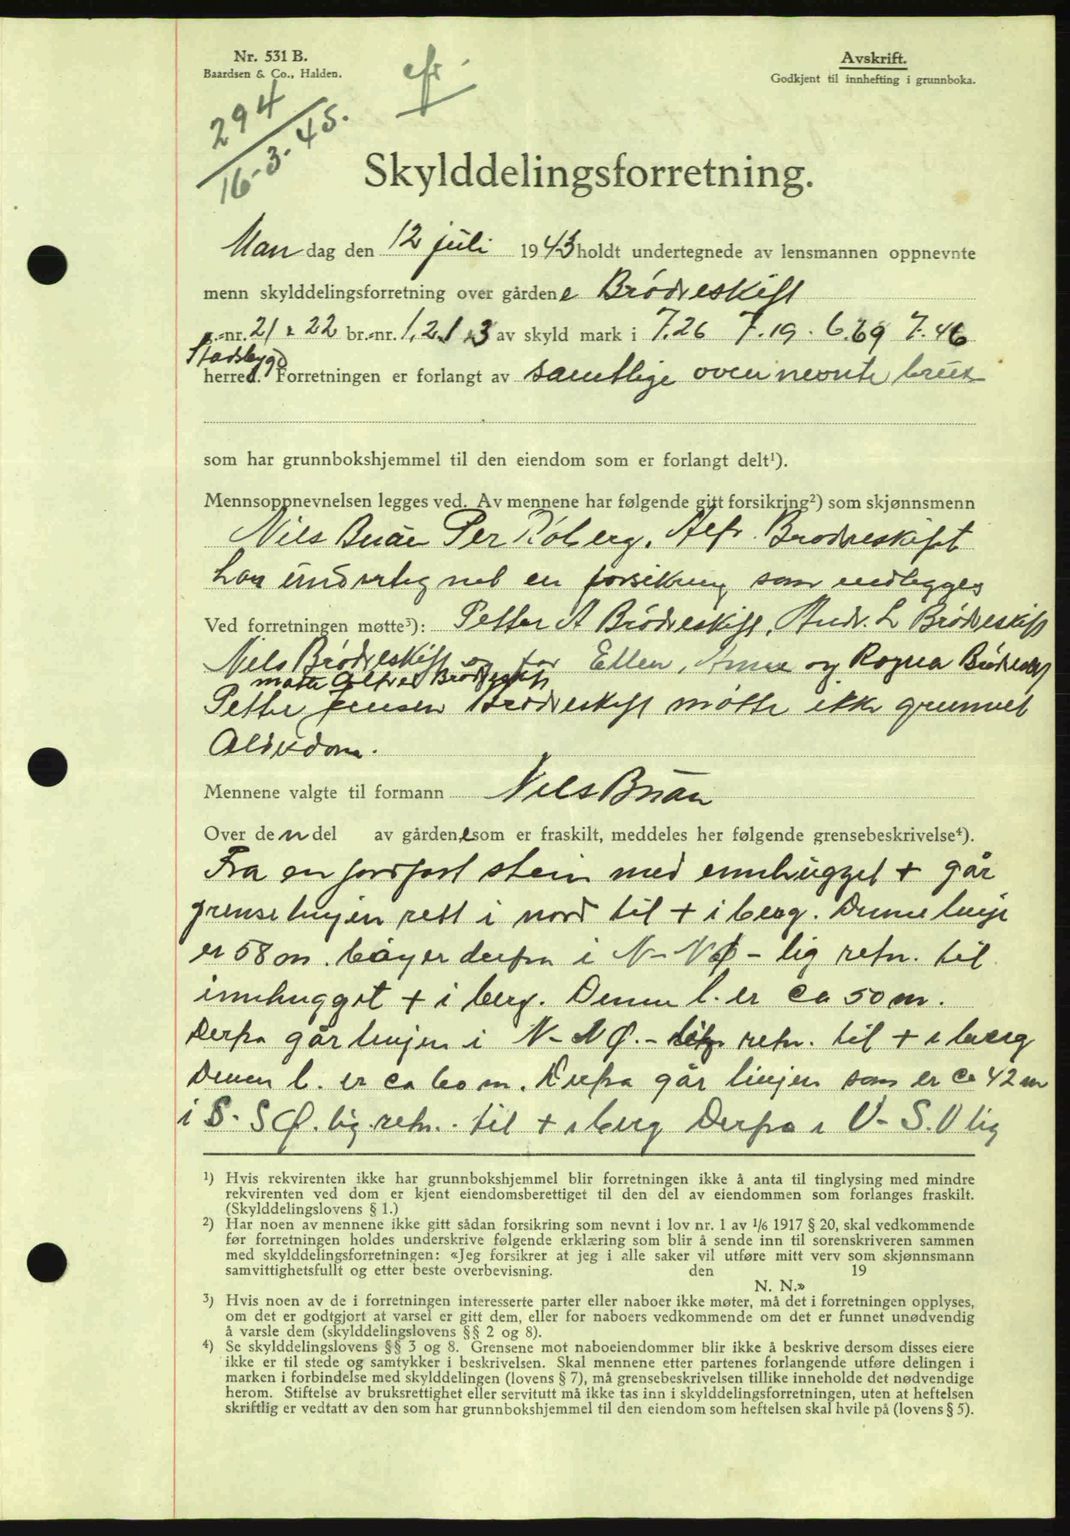 Nr. 531 B.
Baardsen & Co., Halden.
Avskrift.
Godkjent til innhefting i grunnboka.
294
16-3-45.
Skylddelingsforretning.
Mandag den 12 juli 1943 holdt undertegnede av lensmannen oppnevnte
menn skylddelingsforretning over gårdene Brödreskift
g.-nr. 21 & 22 br.-nr. 1, 2, 1 & 3 av skyld mark i 7.26 7.19. 6.69 7.46
Stadsbygd
herred. Forretningen er forlangt av samtlige ovennevnte bruk
som har grunnbokshjemmel til den eiendom som er forlangt delt¹).
Mennsoppnevnelsen legges ved. Av mennene har følgende gitt forsikring²) som skjønnsmenn
Nils Buan Per Röberg. Alfr. Brødreskift
har undertegnet en forsikring som vedlegges
Ved forretningen møtte³): Petter A Brödreskift, Andr. L Brödreskift
Nils Brödreskift og for Ellen, Anna og Ragna Brödreskift
møtte Alfred Brödreskift
Petter Jensen Brödreskift møtte ikke grunnet
Alderdom.
Mennene valgte til formann Nils Buan
Over den del av gårdene som er fraskilt, meddeles her følgende grensebeskrivelse⁴).
Fra en jordfast stein med innhugget + går
grenselinjen rett i nord til + i berg. Denne linje
er 58 m. böyer derfra i N-NØ-lig retn. til
innhugget + i berg. Denne l. er ca 50 m.
Derfra går linjen i N-NØ.-lig retn. til + i berg
Denne l. er ca 60 m. Derfra går linjen som er ca 42 m
i S-SØ.lig.retn. til + i berg Derfra i V-S.V lig
¹) Hvis rekvirenten ikke har grunnbokshjemmel blir forretningen ikke å anta til tinglysing med mindre
rekvirenten ved dom er kjent eiendomsberettiget til den del av eiendommen som forlanges fraskilt.
(Skylddelingslovens § 1.)
²) Har noen av mennene ikke gitt sådan forsikring som nevnt i lov nr. 1 av 1/6 1917 § 20, skal vedkommende
før forretningen holdes underskrive følgende erklæring som blir å sende inn til sorenskriveren sammen
med skylddelingsforretningen: «Jeg forsikrer at jeg i alle saker vil utføre mitt verv som skjønnsmann
samvittighetsfullt og etter beste overbevisning. den 19
N. N.»
³) Hvis noen av de i forretningen interesserte parter eller naboer ikke møter, må det i forretningen opplyses,
om det er godtgjort at varsel er gitt dem, eller for naboers vedkommende om det er funnet unødvendig
å varsle dem (skylddelingslovens §§ 2 og 8).
⁴) Se skylddelingslovens §§ 3 og 8. Grensene mot naboeiendommer blir ikke å beskrive dersom disses eiere
ikke er til stede og samtykker i beskrivelsen. Skal mennene etter partenes forlangende utføre delingen i
marken i forbindelse med skylddelingen (lovens § 7), må grensebeskrivelsen tillike inneholde det nødvendige
herom. Stiftelse av bruksrettighet eller servitutt må ikke tas inn i skylddelingsforretningen, uten at heftelsen
skriftlig er vedtatt av den som har grunnbokshjemmel til den eiendom som heftelsen skal hvile på (lovens § 5).